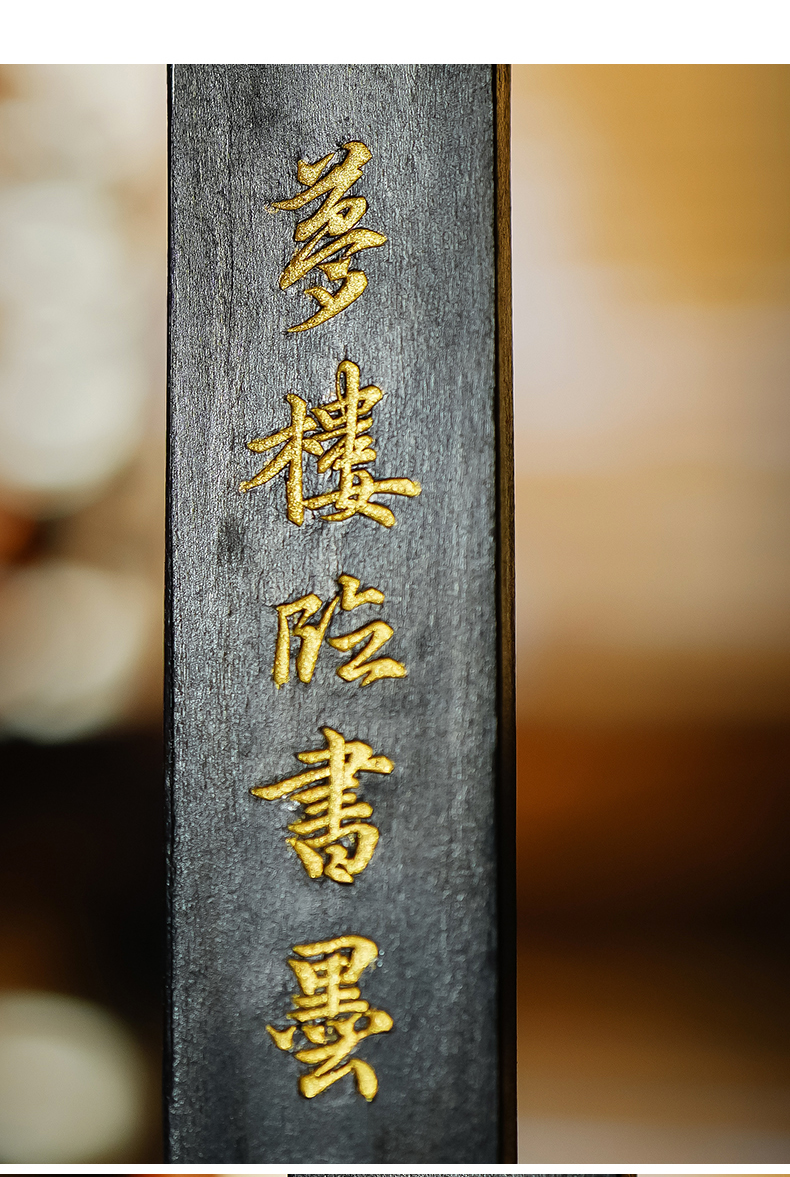 夢樓臨書墨